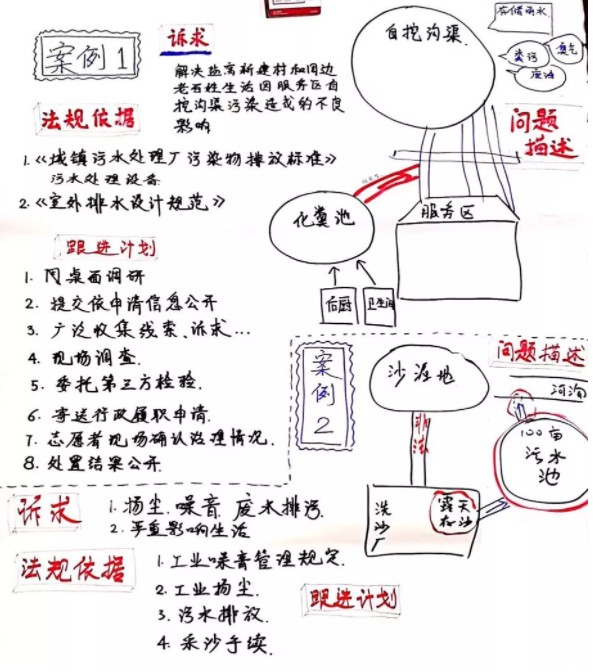 案例1
诉求
解决盐高新建村和周边
老百姓生活因服务区自
挖沟渠污染造成的不良
影响
法规依据
1.《城镇污水处理厂污染物排放标准》
污水处理设备
2.《室外排水设计规范》
跟进计划
1. 网桌面调研
2. 提交依申请信息公开
3. 广泛收集线索、诉求...
4. 现场调查.
5. 委托第三方检验.
6. 寄送行政履职申请.
7. 志愿者现场确认治理情况.
8. 处置结果公开.
问题
描述
自挖沟渠
存储雨水
粪污
臭气
废油
化粪池
服务区
后厨
卫生间
案例2
问题描述
沙滩地
非法
河沟
100亩
污水
池
洗沙厂
露天
存沙
诉求
1. 扬尘、噪音、废水排污.
2. 严重影响生活
法规依据
1. 工业噪音管理规定.
2. 工业扬尘.
3. 污水排放.
4. 采沙手续.
跟进计划